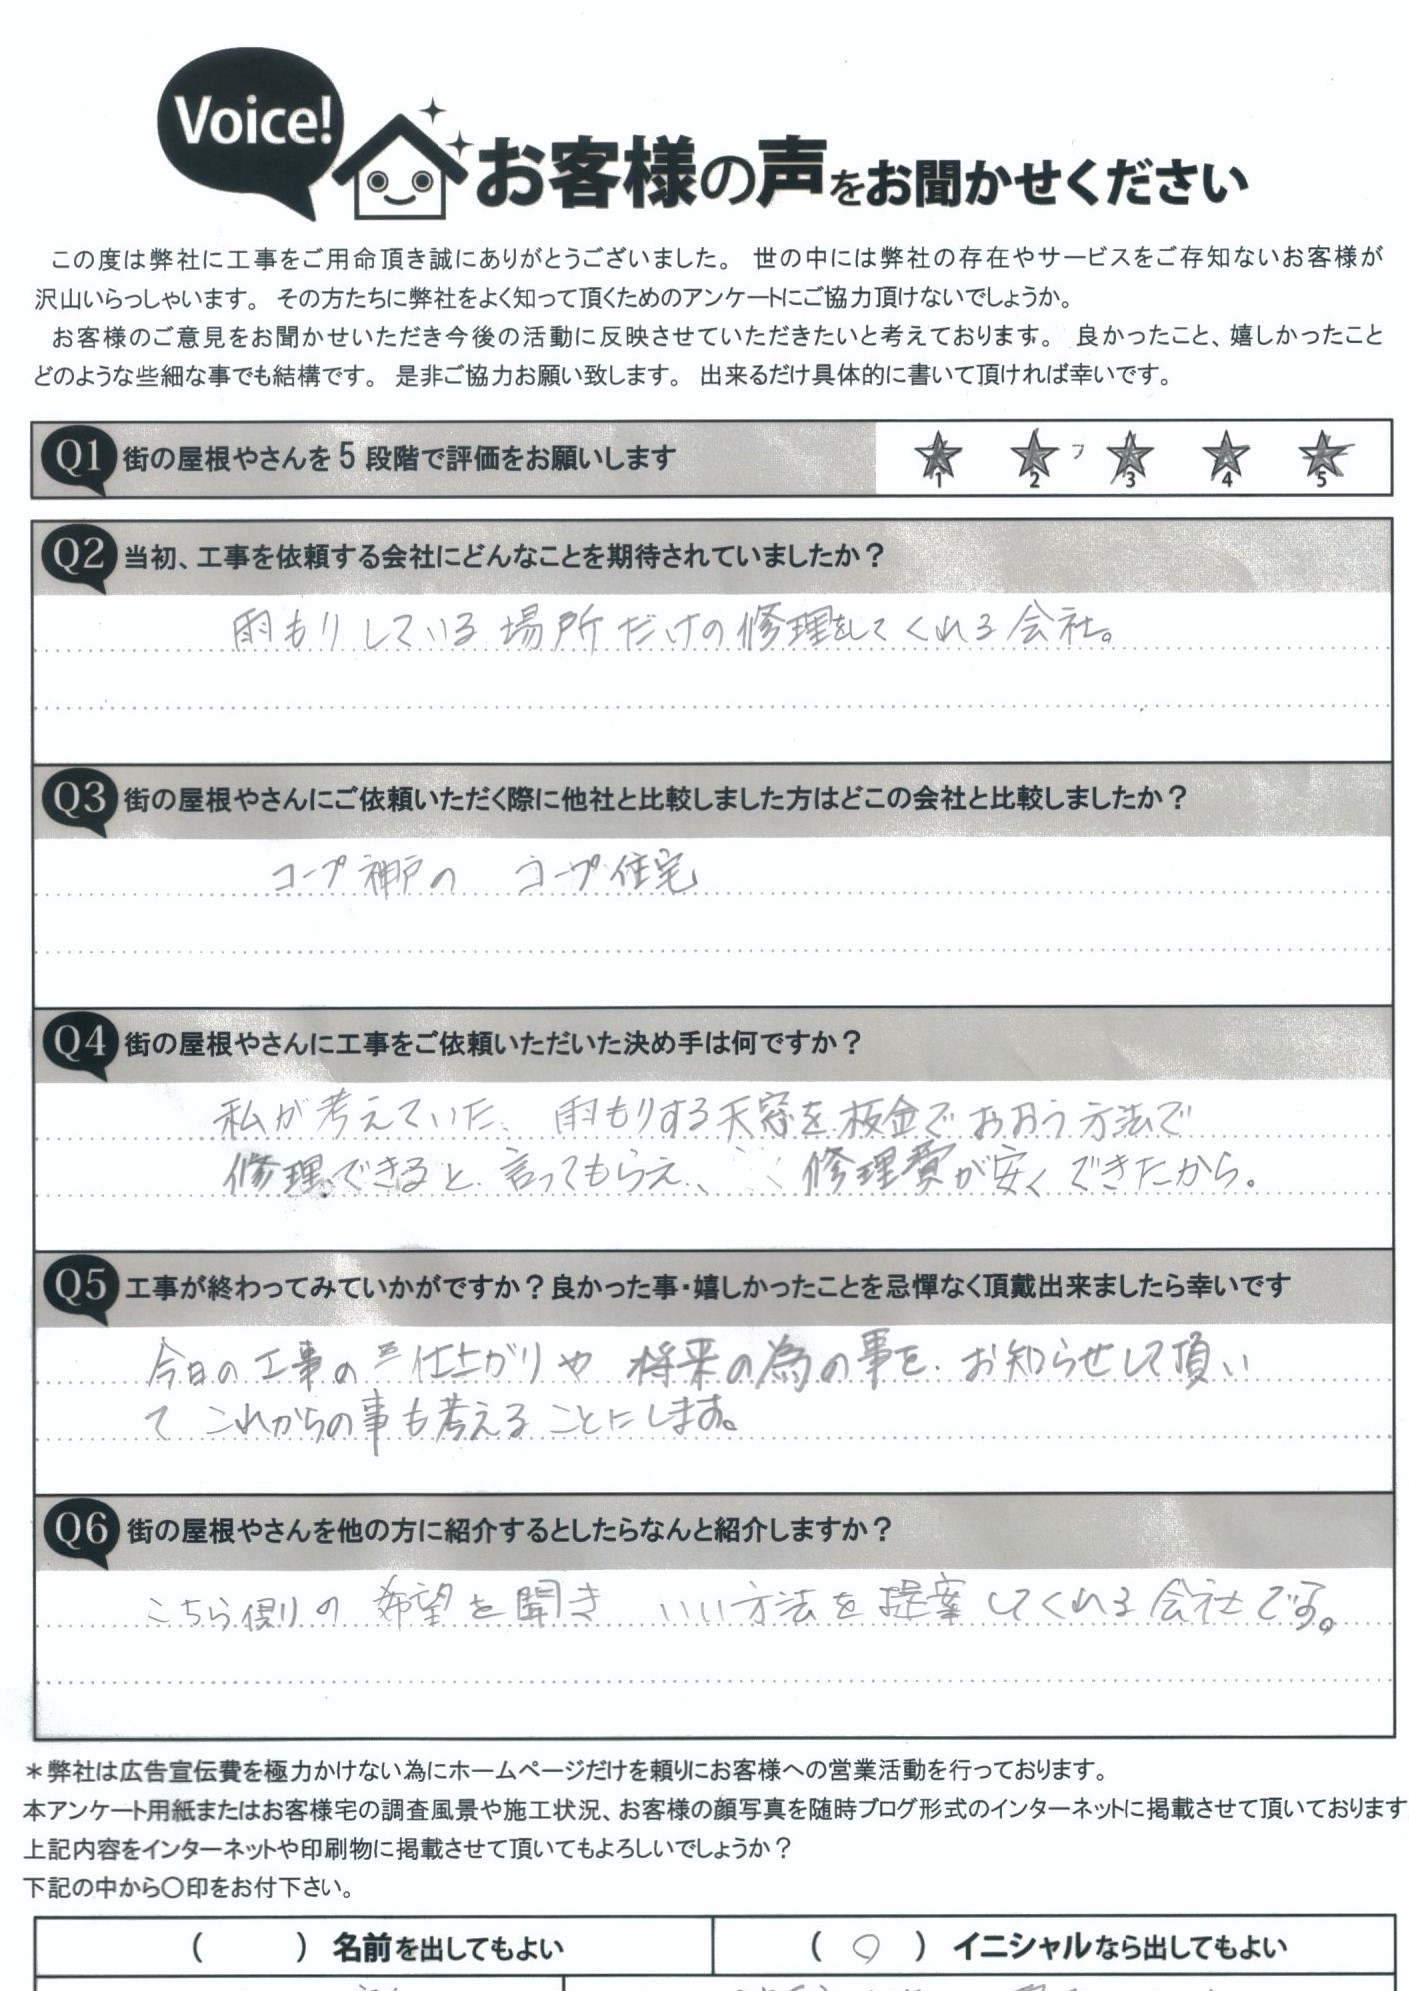 Voice!
お客様の声をお聞かせください
この度は弊社に工事をご用命頂き誠にありがとうございました。 世の中には弊社の存在やサービスをご存知ないお客様が
沢山いらっしゃいます。 その方たちに弊社をよく知って頂くためのアンケートにご協力頂けないでしょうか。
お客様のご意見をお聞かせいただき今後の活動に反映させていただきたいと考えております。 良かったこと、嬉しかったこと
どのような些細な事でも結構です。 是非ご協力お願い致します。 出来るだけ具体的に書いて頂ければ幸いです。
Q1 街の屋根やさんを5段階で評価をお願いします
1 2 3 4 5
Q2 当初、工事を依頼する会社にどんなことを期待されていましたか？
雨もりしている場所だけの修理をしてくれる会社。
Q3 街の屋根やさんにご依頼いただく際に他社と比較しました方はどこの会社と比較しましたか？
コープ神戸の コープ住宅
Q4 街の屋根やさんに工事をご依頼いただいた決め手は何ですか？
私が考えていた、雨もりする天窓を板金でおおう方法で
修理できると言ってもらえ、 修理費が安くできたから。
Q5 工事が終わってみていかがですか？良かった事・嬉しかったことを忌憚なく頂戴出来ましたら幸いです
今日の工事の 仕上がりや 将来の為の事を お知らせして頂い
て これからの事も考えることにします。
Q6 街の屋根やさんを他の方に紹介するとしたらなんと紹介しますか？
こちら側の 希望を聞き いい方法を提案してくれる会社です。
＊弊社は広告宣伝費を極力かけない為にホームページだけを頼りにお客様への営業活動を行っております。
本アンケート用紙またはお客様宅の調査風景や施工状況、お客様の顔写真を随時ブログ形式のインターネットに掲載させて頂いております
上記内容をインターネットや印刷物に掲載させて頂いてもよろしいでしょうか？
下記の中から〇印をお付下さい。
（ ）名前を出してもよい
（ ○ ）イニシャルなら出してもよい